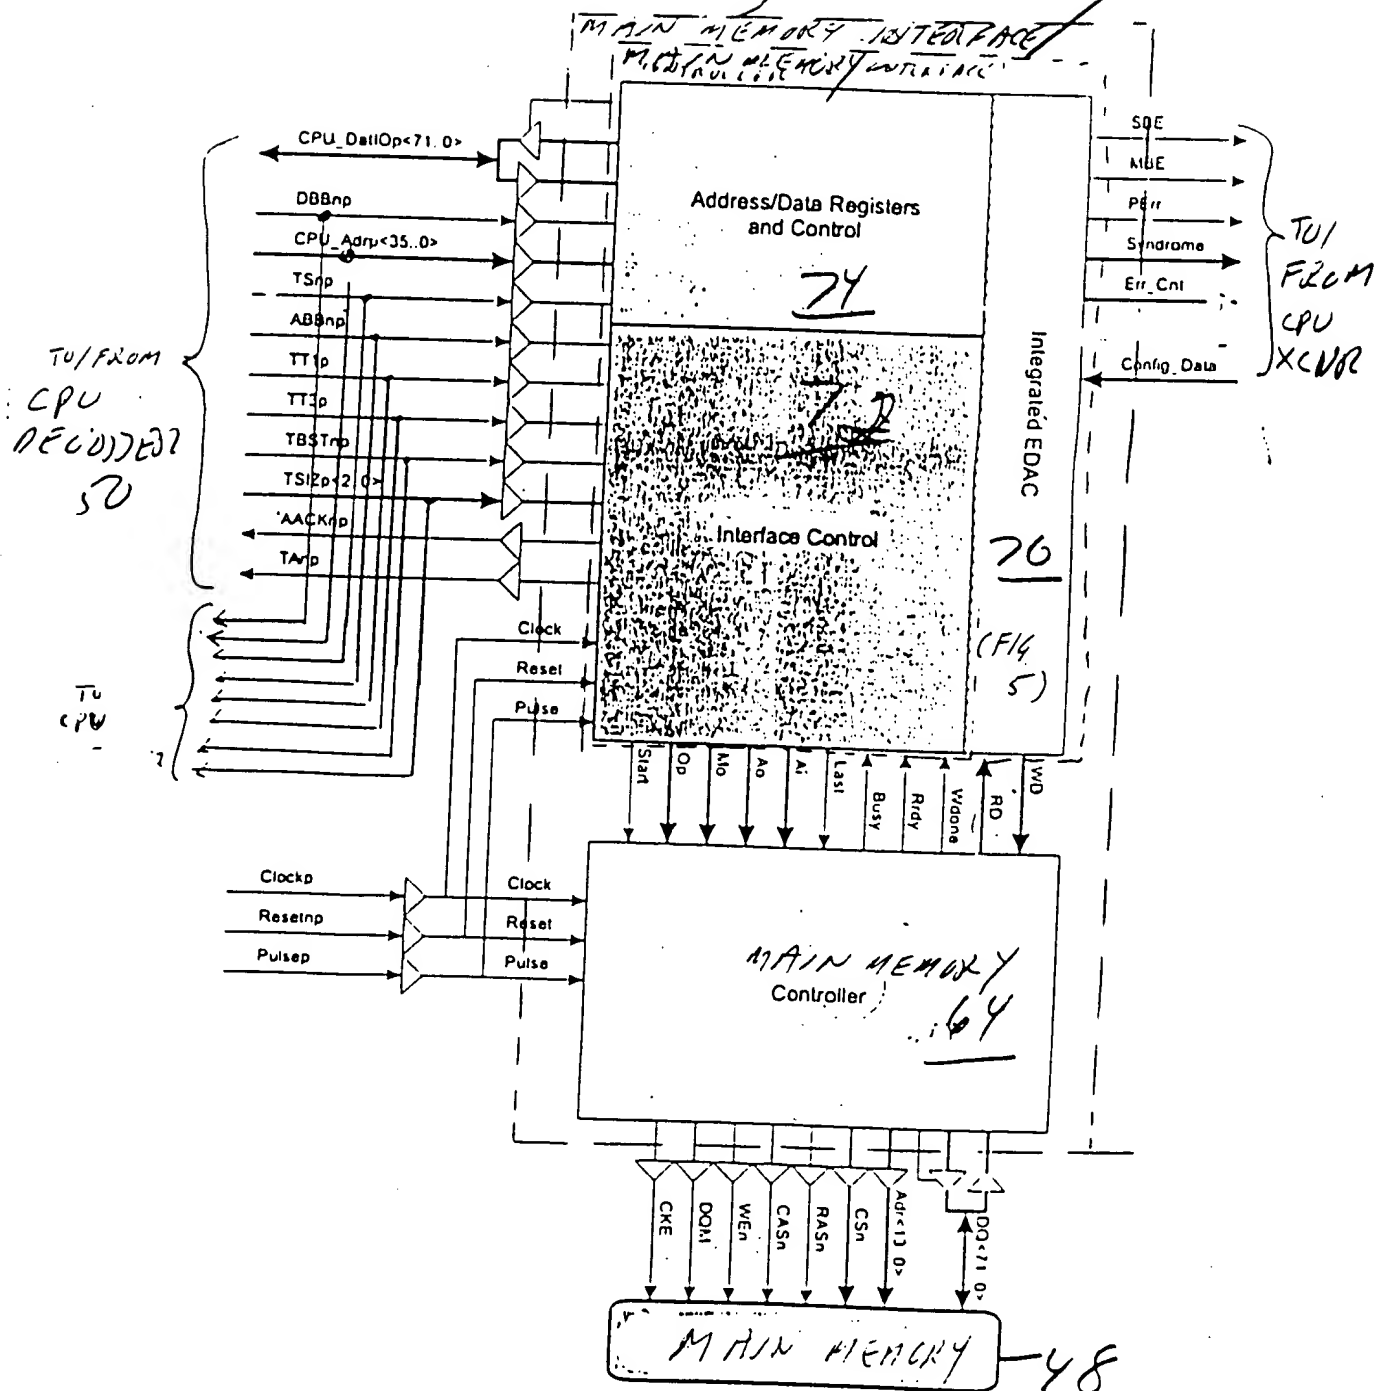 MAIN MEMORY INTERFACE
MAIN MEMORY INTERFACE
CPU_DatIOp<71..0>
DBBnp
CPU_Adrp<35..0>
TSnp
ABBnp
TT1p
TT3p
TBSTnp
TSIZp<2..0>
AACKnp
TAnp
TO/FROM
CPU
DECODER
50
TO
CPU
Address/Data Registers
and Control
74
72
Interface Control
Integrated EDAC
70
(FIG
5)
SBE
MBE
PErr
Syndrome
Err_Cnt
Config_Data
TO/
FROM
CPU
XCNR
Clock
Reset
Pulse
Start
Op
Mo
Ao
Ai
Last
Busy
Rrdy
Wdone
RD
WD
Clockp
Resetnp
Pulsep
Clock
Reset
Pulse
MAIN MEMORY
Controller
64
CKE
DQM
WEn
CASn
RASn
CSn
Adr<13..0>
DQ<71..0>
MAIN MEMORY
48